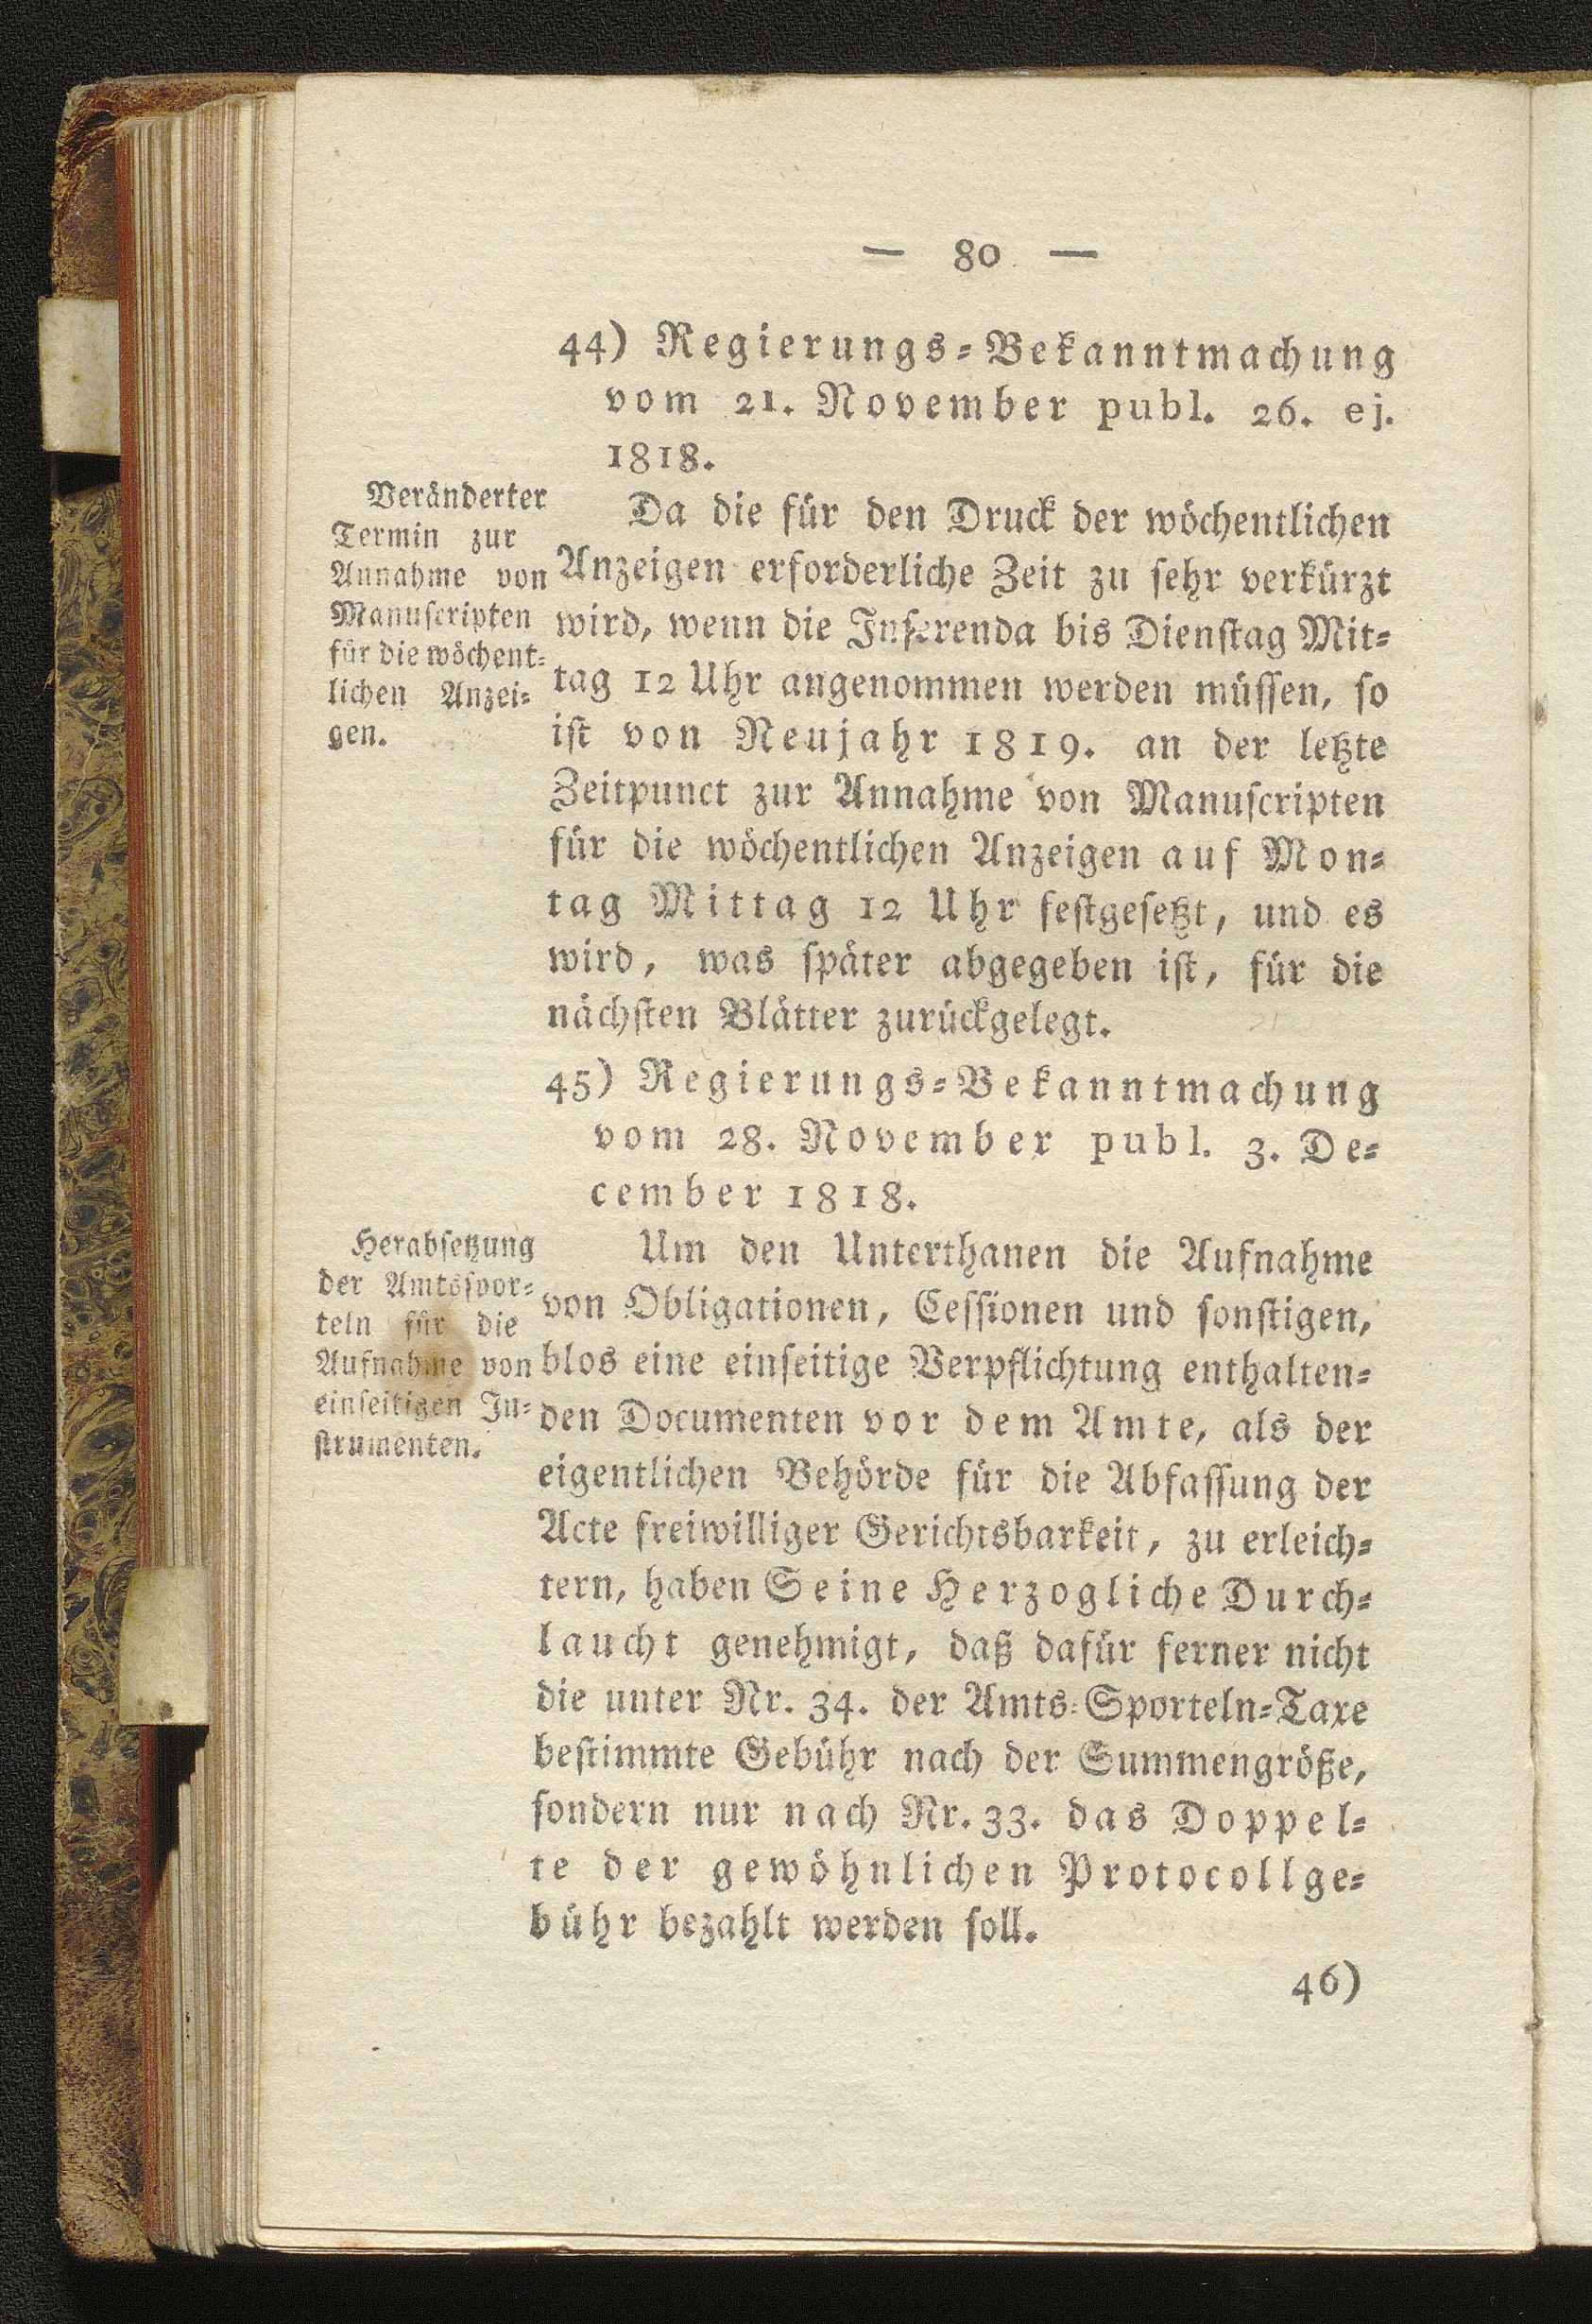 — 80 —
44) Regierungs-Bekanntmachung
vom 21. November publ. 26. ej.
1818.
Veränderter
Termin zur
Annahme von
Manuscripten
für die wöchent-
lichen Anzei-
gen.
Da die für den Druck der wöchentlichen
Anzeigen erforderliche Zeit zu sehr verkürzt
wird, wenn die Inserenda bis Dienstag Mit-
tag 12 Uhr angenommen werden müssen, so
ist von Neujahr 1819. an der letzte
Zeitpunct zur Annahme von Manuscripten
für die wöchentlichen Anzeigen auf Mon-
tag Mittag 12 Uhr festgesetzt, und es
wird, was später abgegeben ist, für die
nächsten Blätter zurückgelegt.
45) Regierungs-Bekanntmachung
vom 28. November publ. 3. De-
cember 1818.
Herabsetzung
der Amtsspor-
teln für die
Aufnahme von
einseitigen In-
strumenten.
Um den Unterthanen die Aufnahme
von Obligationen, Cessionen und sonstigen,
blos eine einseitige Verpflichtung enthalten-
den Documenten vor dem Amte, als der
eigentlichen Behörde für die Abfassung der
Acte freiwilliger Gerichtsbarkeit, zu erleich-
tern, haben Seine Herzogliche Durch-
laucht genehmigt, daß dafür ferner nicht
die unter Nr. 34. der Amts-Sporteln-Taxe
bestimmte Gebühr nach der Summengröße,
sondern nur nach Nr. 33. das Doppel-
te der gewöhnlichen Protocollge-
bühr bezahlt werden soll.
46)